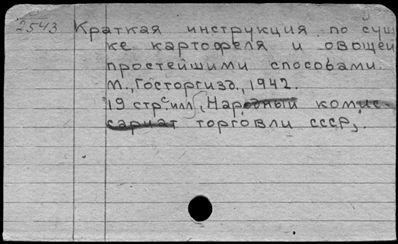 2543 Краткая инструкция по суш
ке картофеля и овощей
простейшими способами.
М., Госторгизд., 1942.
19 стр. с илл., Народный комис-
сариат торговли СССР,.